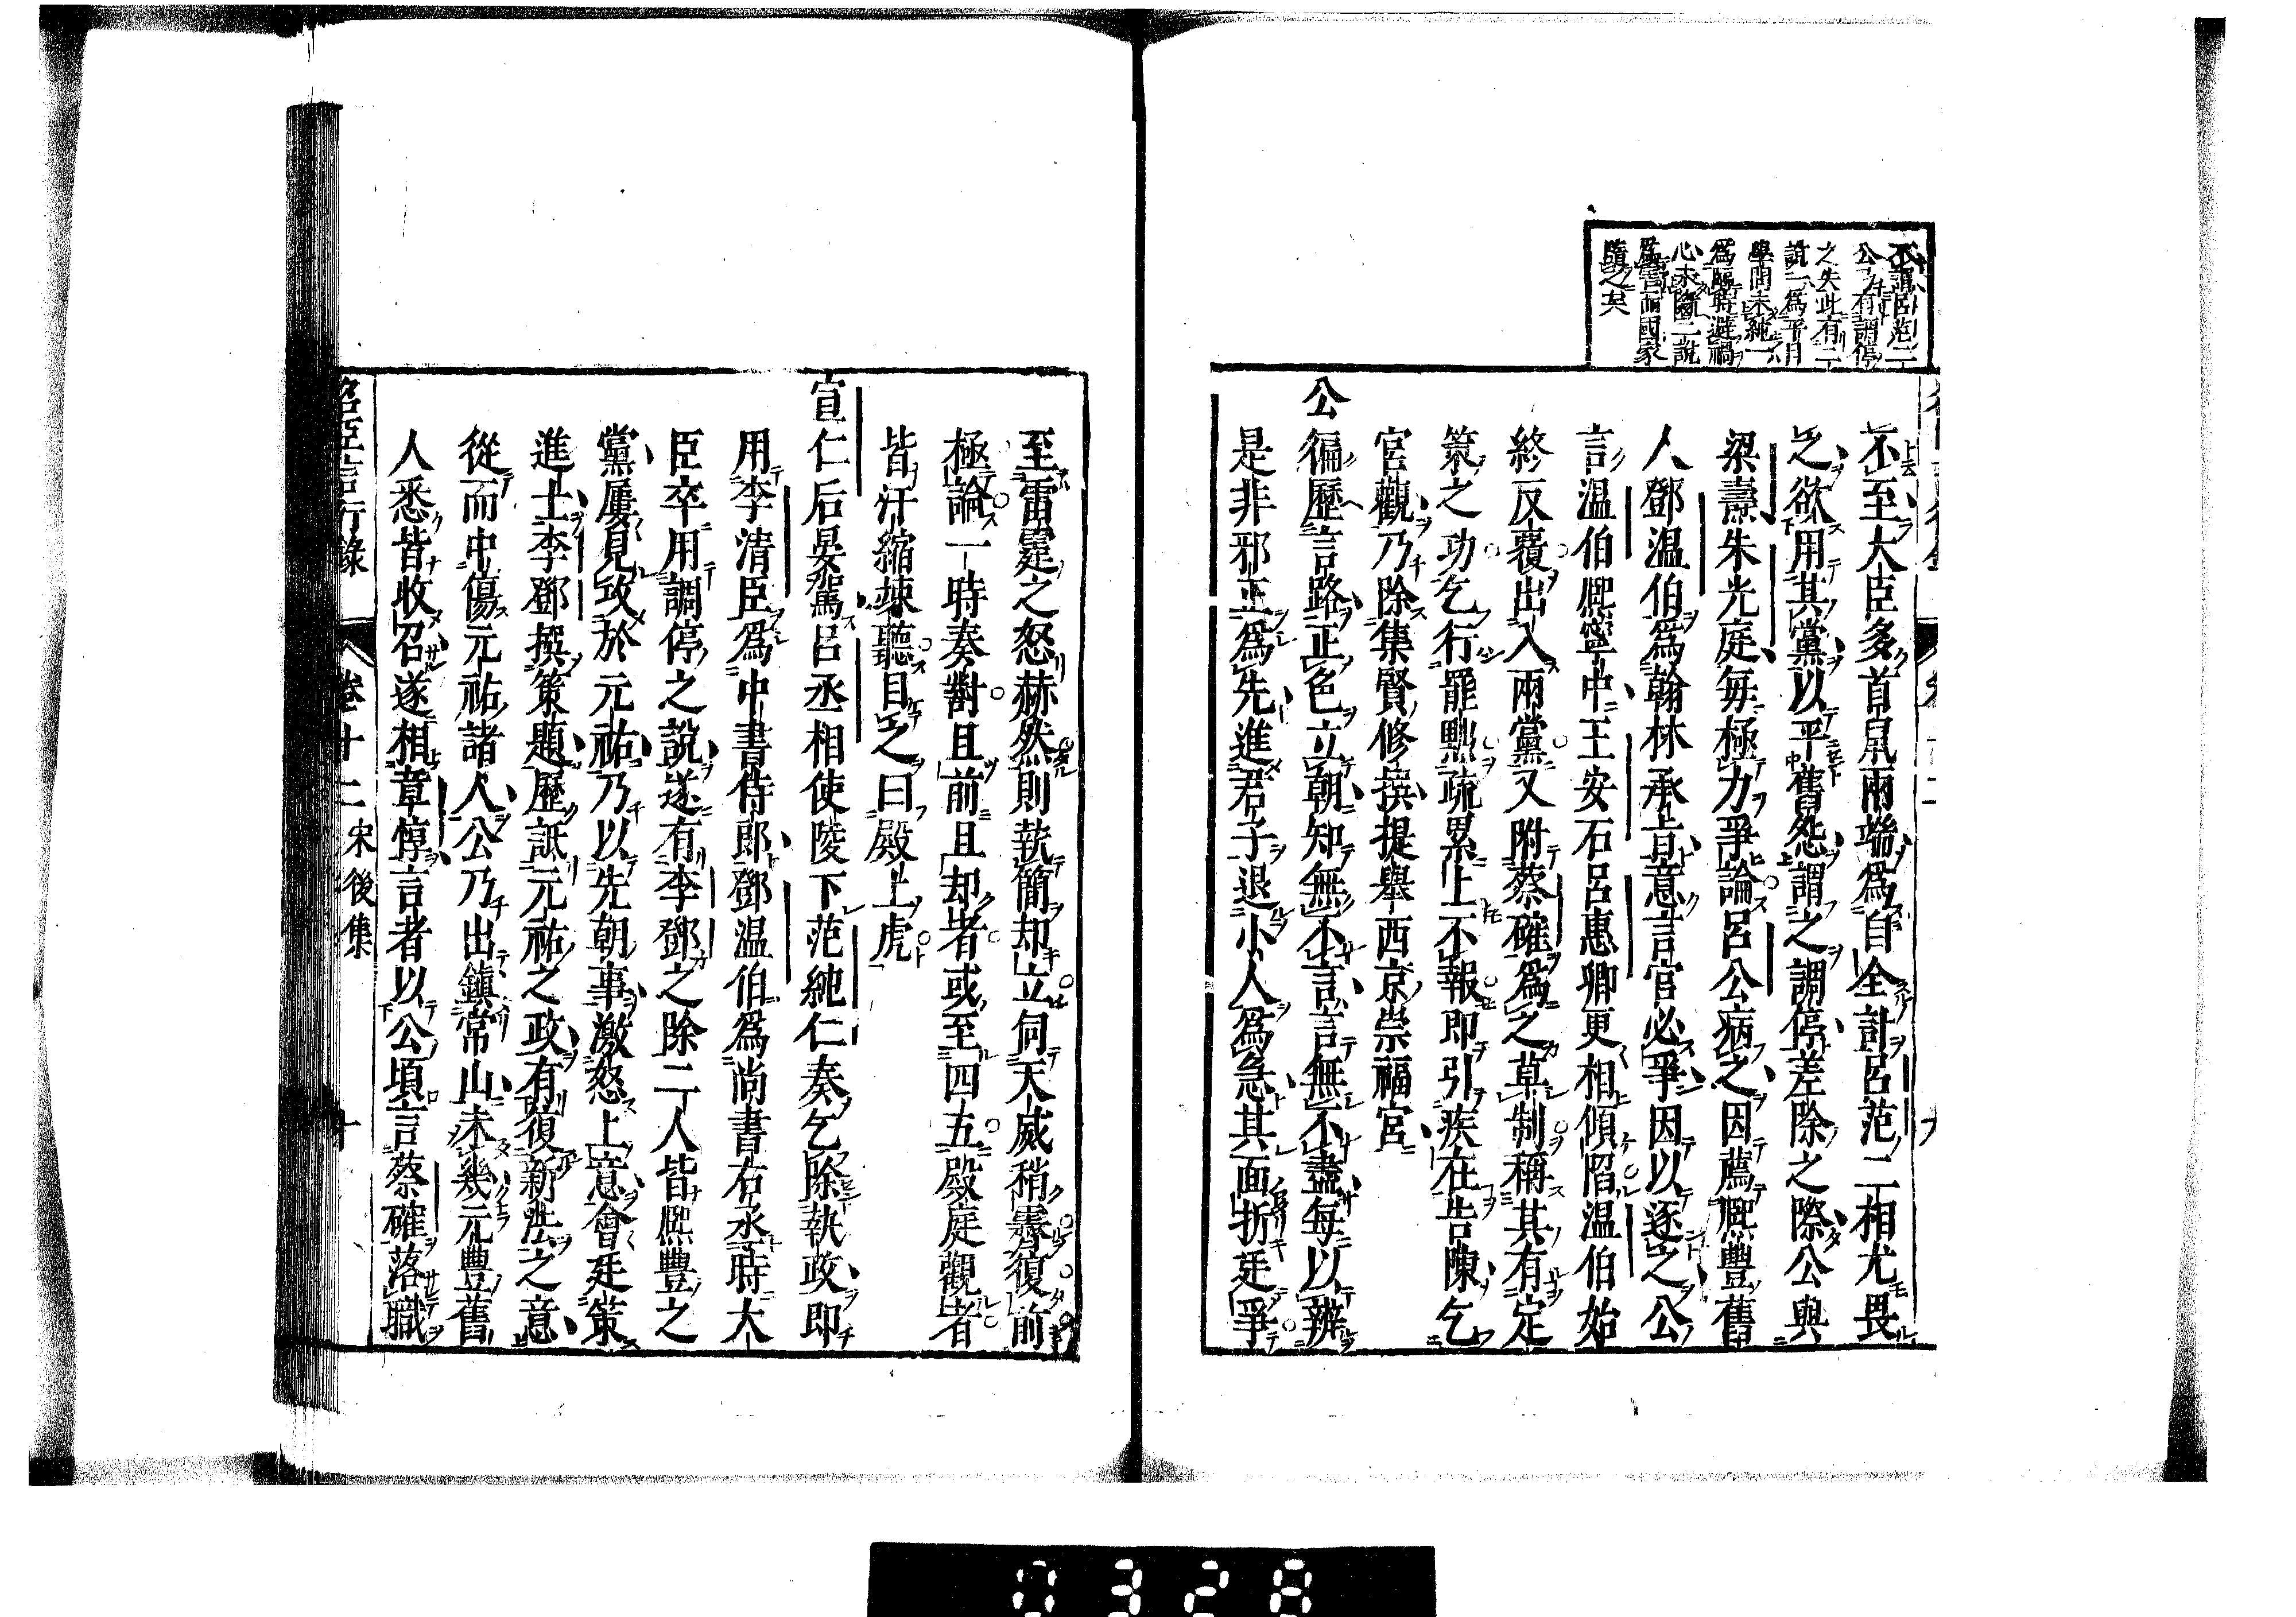 不謂呂范二
公有調停
之失此有二
說一爲平日
學問未純一
爲臨時避禍
心未二說
爲害而國家
隨之矣
不至大臣多首鼠兩端爲自全計呂范二相尤畏
之欲用其黨以平舊怨謂之調停差除之際公與
梁燾朱光庭每極力爭論呂公病之因薦熙豐舊
人鄧温伯爲翰林承旨意言官必爭因以逐之公
言温伯熙寧中王安石呂惠卿更相傾陷温伯始
終反覆出入兩黨又附蔡確爲之草制稱其有定
策之功乞行罷黜疏累上不報即引疾在告陳乞
宮觀乃除集賢修撰提舉西京崇福宮
公徧歷言路正色立朝知無不言言無不盡每以辨
是非邪正爲先進君子退小人爲急其面折廷爭
至雷霆之怒赫然則執簡却立伺天威稍霽復前
極論一時奏對且前且却者或至四五殿庭觀者
皆汗縮竦聽目之曰殿上虎
宣仁后晏駕呂丞相使陵下范純仁奏乞除執政即
用李清臣爲中書侍郎鄧温伯爲尚書右丞時大
臣卒用調停之說遂有李鄧之除二人皆熙豐之
黨屢見攻於元祐乃以先朝事激怒上意會廷策
進士李鄧撰策題歷詆元祐之政有復新法之意
從而中傷元祐諸人公乃出鎮常山未幾元豐舊
人悉皆收召遂相章惇言者以公頃言蔡確落職
名臣言行錄 卷十二 宋後集 十
0328